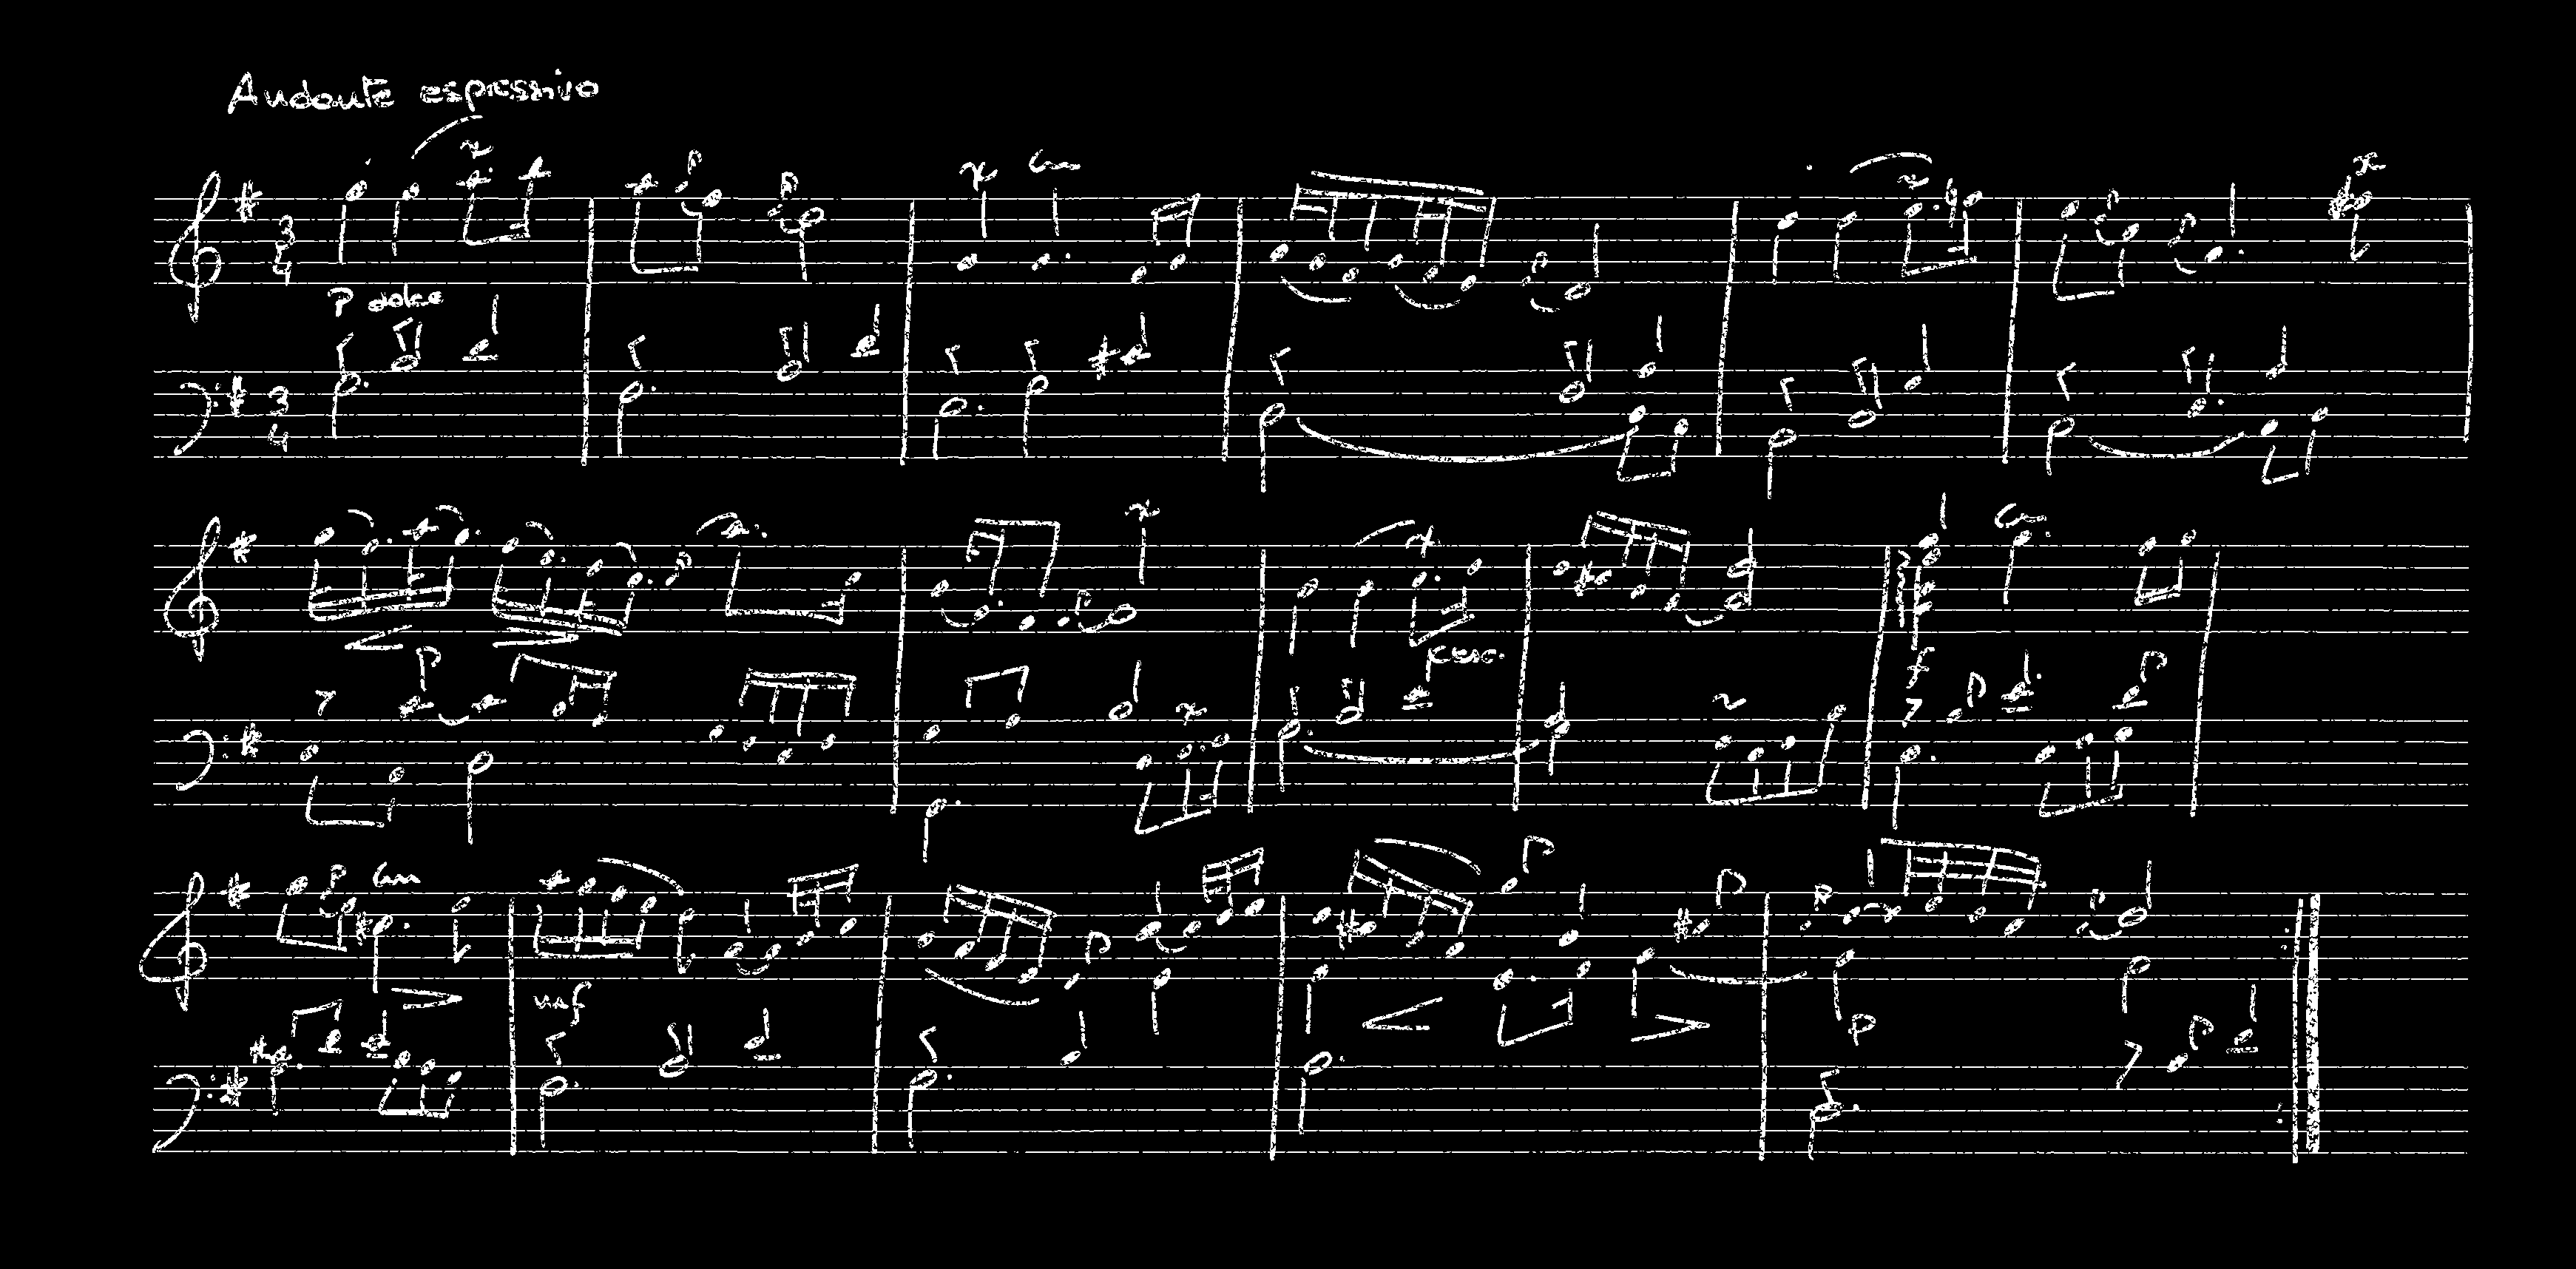 Andante espressivo
3
4
P dolce
3
4
cresc.
f
mf
p